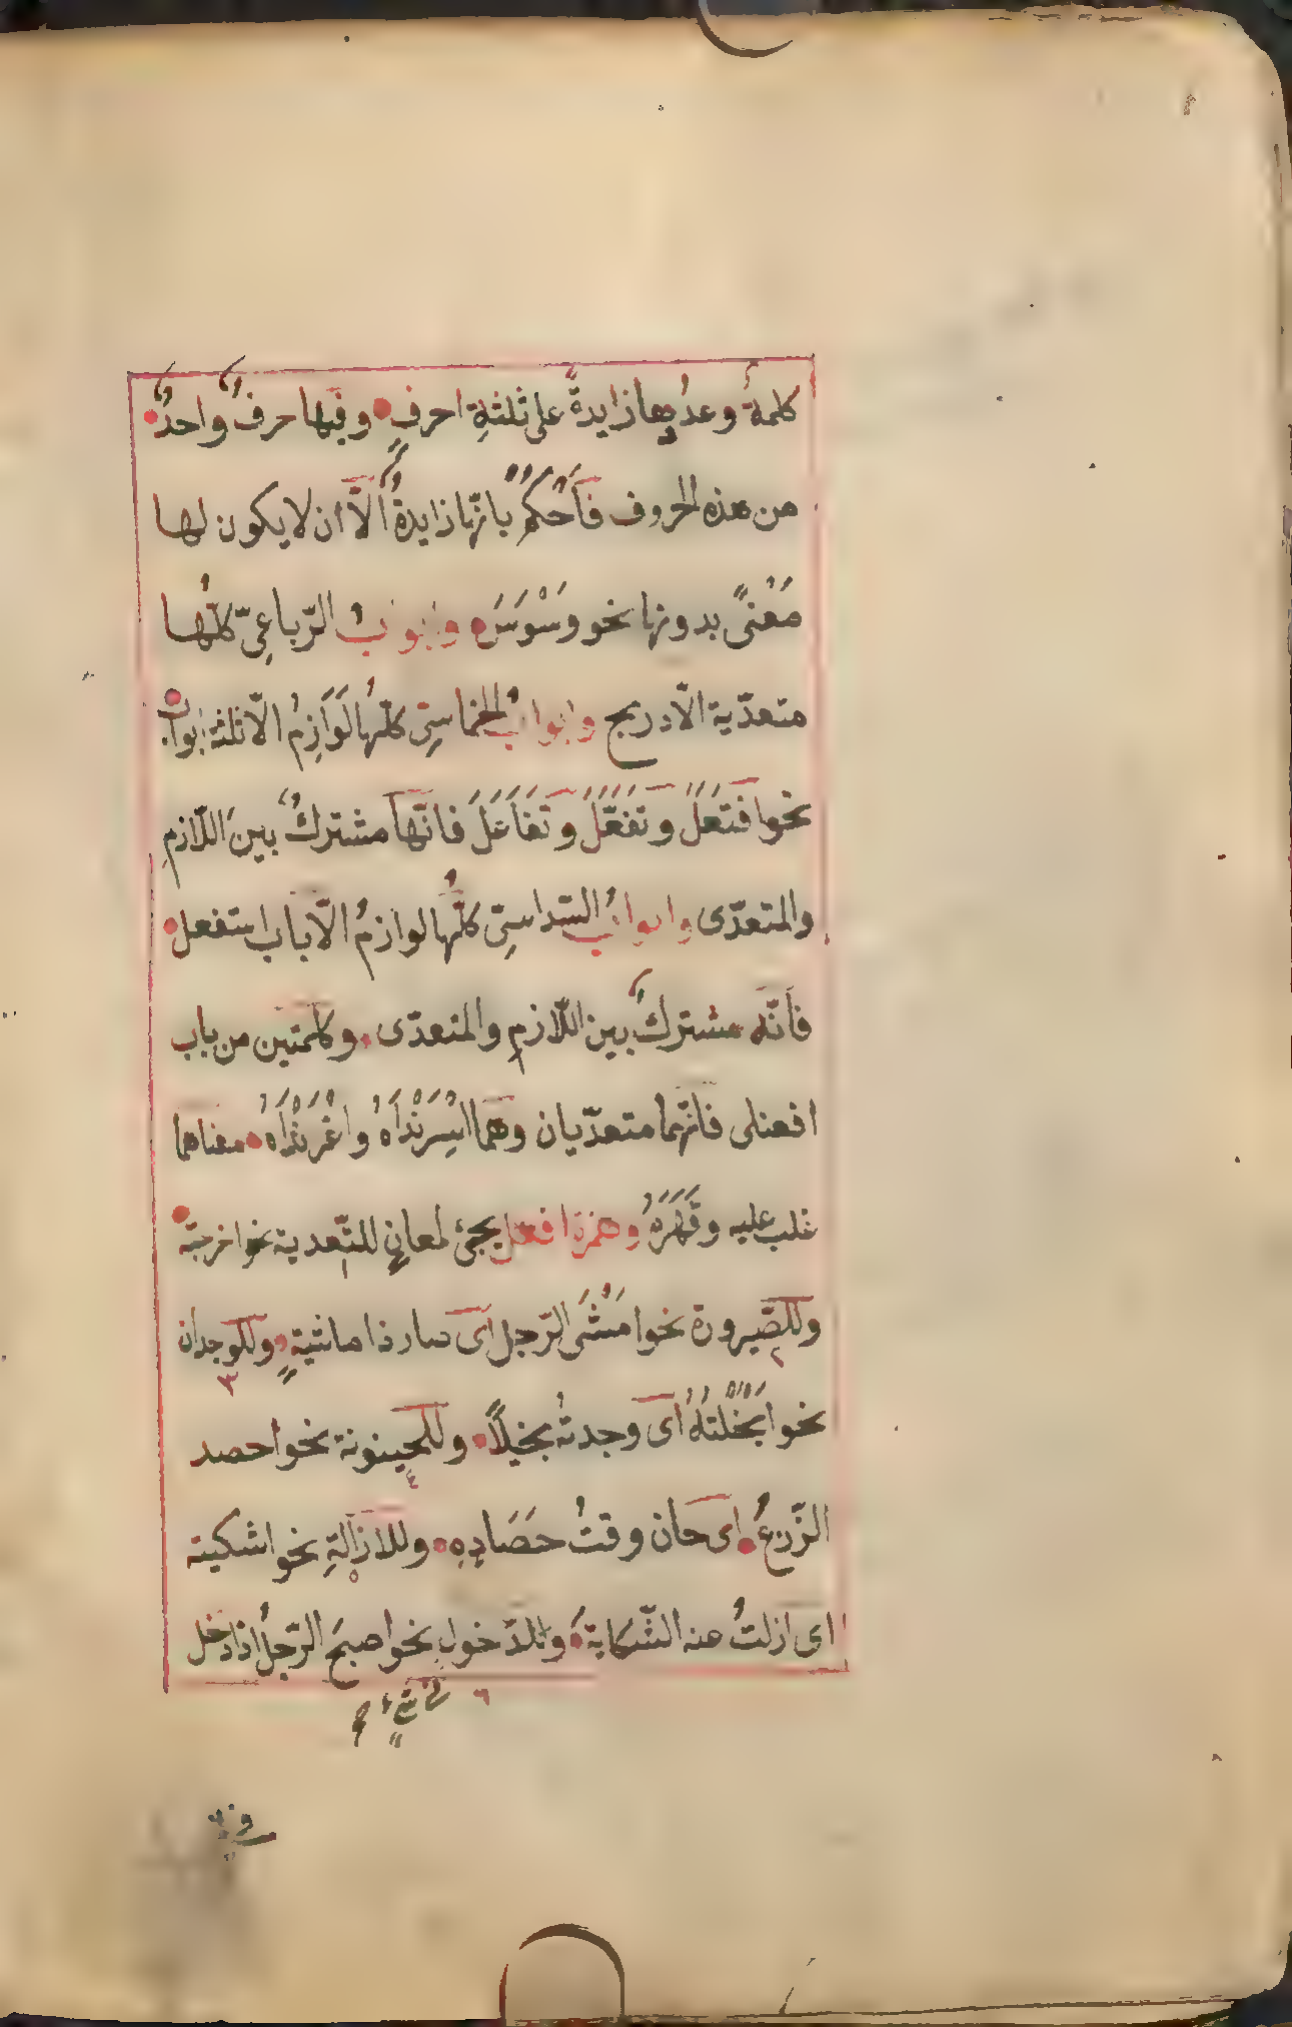 كلمةٌ وعددها زايدةٌ على ثلثةِ احرفٍ وفيها حرفٌ واحدٌ
من هذه الحروف فَاَحْكُمْ بانّها زايدةٌ اَلّا ان لا يكون لها
مَعْنىً بدونها نحو وَسْوَسَ وابوابُ الرّباعىِّ كلُّها
متعدّية الّا دربج وابوابُ الخماسىِّ كلّهُا لَوَازِمُ الّا ثلثة ابوابٍ
نحو افتَعَلَ وتَفَعَّلَ وتَفَاعَلَ فانّها مشتركٌ بينَ اللّازمِ
والمتعدّى وابوابُ السّداسىِّ كلُّها لوازمُ الّا باب استفعل
فأنّه مشتركٌ بين اللّازمِ والمتعدّى وكلمتين من باب
افعنلى فانّهما متعدّيان وهما اسْرَنْدَاهُ واغْرَنْدَاهُ معناهما
غلب عليه وقَهَرَهُ وهمزة افعل يجئ لمعانٍ للتّعدية نحو اخرجته
وللصّيرورة نحو امَشْىَ الرّجل اى صار ذا ماشيةٍ وللوجدان
نحو ابْخَلْتُهُ اى وجدتُه بخيلًا وللحينونة نحو احصد
الزّرعُ اى حان وقتُ حَصَادِهِ وللازالةِ نحو اشكيته
اى ازلتُ عنه الشّكاية وللدّخولِ نحو اصبحَ الرّجلُ اذا دخل